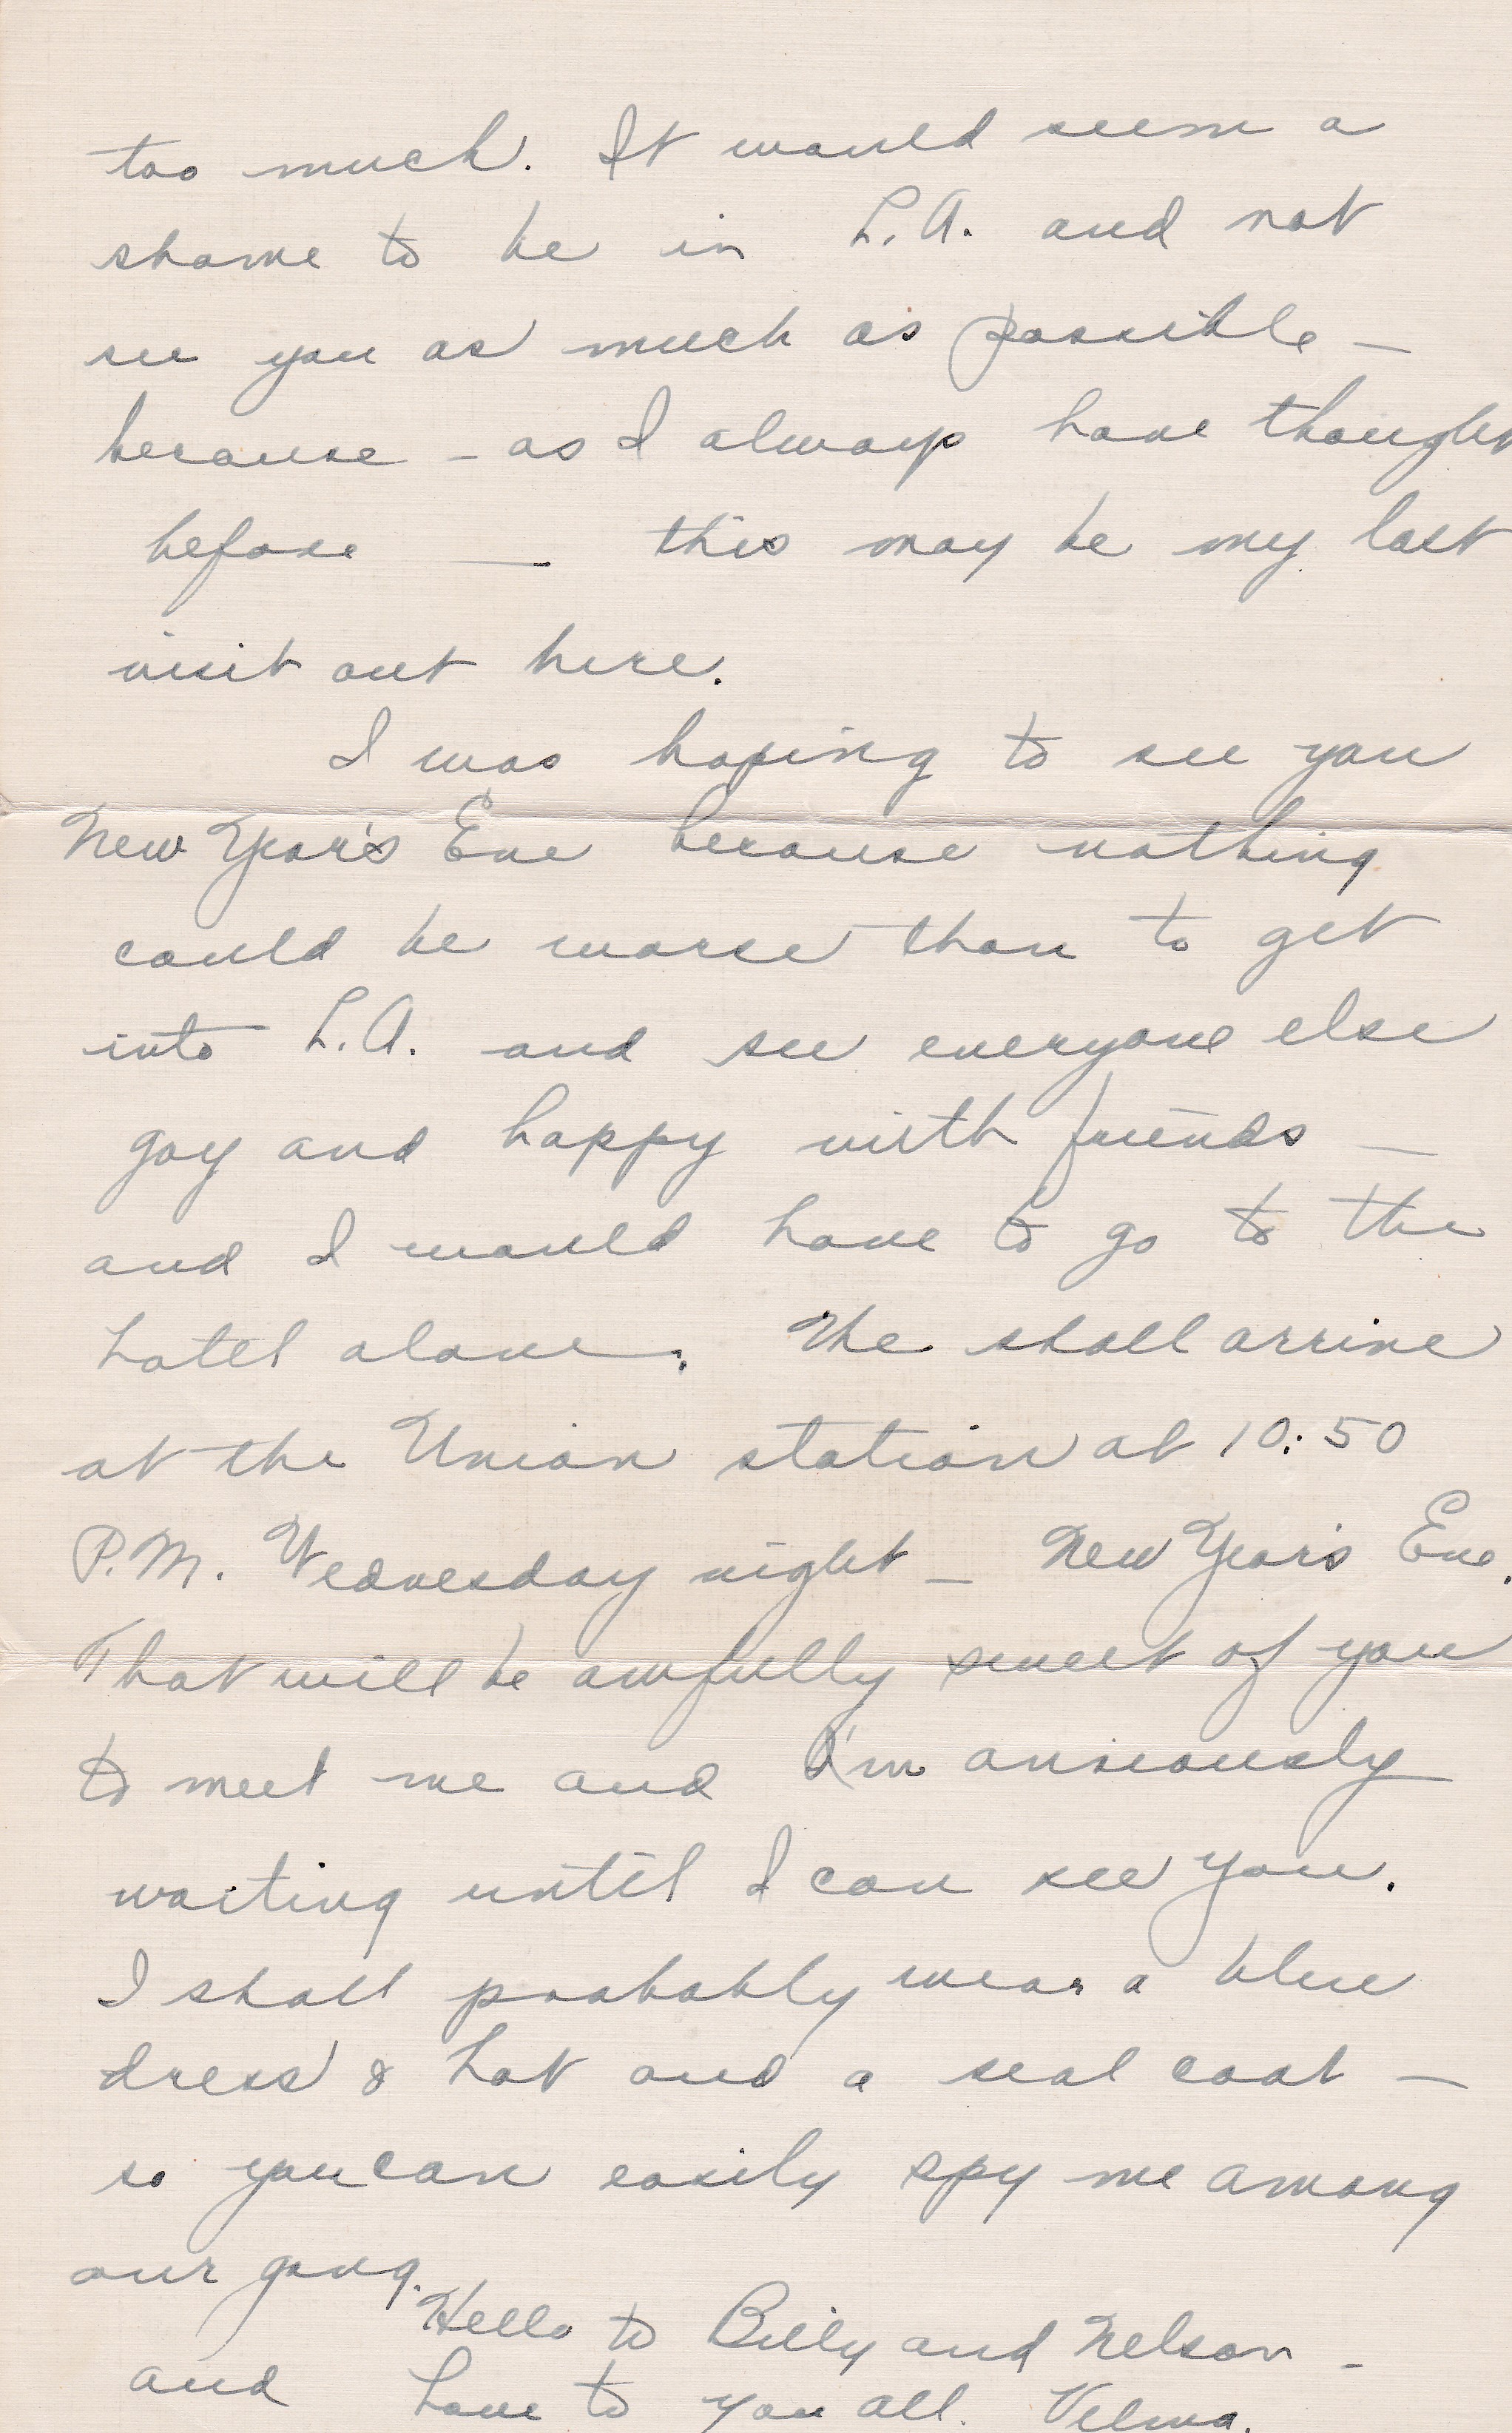 too much. It would seem a
shame to be in L.A. and not
see you as much as possible —
because - as I always have thought
before — this may be my last
visit out here.
I was hoping to see you
New Year's Eve because nothing
could be worse than to get
into L.A. and see everyone else
gay and happy with friends —
and I would have to go to the
hotel alone. We shall arrive
at the Union station at 10:50
P.M. Wednesday night - New Year's Eve.
That will be awfully sweet of you
to meet me and I'm anxiously
waiting until I can see you.
I shall probably wear a blue
dress & hat and a seal coat —
so you can easily spy me among
our gang.
Hello to Billy and Nelson -
and Love to you all. Velma.